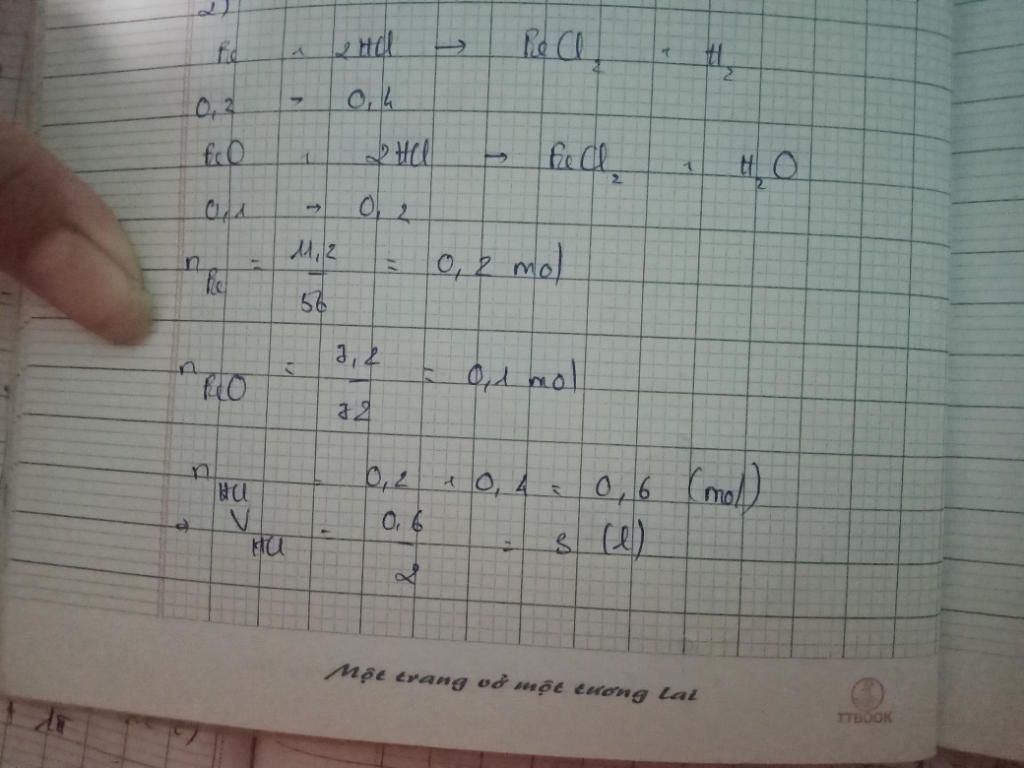 2)
Fe + 2HCl → FeCl₂ + H₂
0,2 → 0,4
FeO + 2HCl → FeCl₂ + H₂O
0,1 → 0,2
n Fe = 11,2 / 56 = 0,2 mol
n FeO = 7,2 / 72 = 0,1 mol
n HCl = 0,2 + 0,4 = 0,6 (mol)
→ V HCl = 0,6 / 2 = 3 (l)
Một trang vở một tương lai
TTBOOK